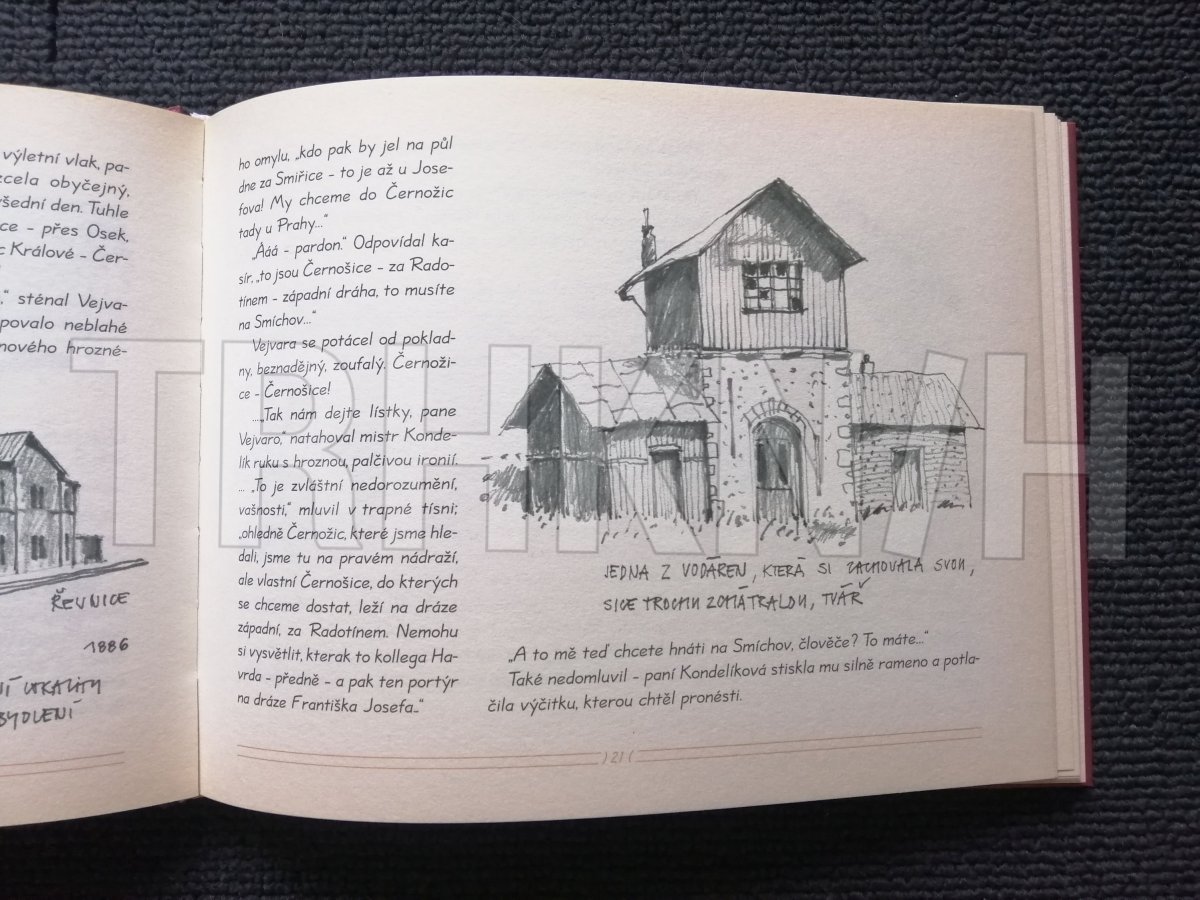 výletní vlak, pa-
zcela obyčejný,
všední den. Tuhle
ce - přes Osek,
c Králové - Čer-
“ sténal Vejva-
povalo neblahé
nového hrozné-
ŘEVNICE
1886
LOKALITU
BYDLENÍ
ho omylu, „kdo pak by jel na půl
dne za Smiřice - to je až u Jose-
fova! My chceme do Černožic
tady u Prahy...“
„Ááá - pardon.“ Odpovídal ka-
sír, „to jsou Černošice - za Rado-
tínem - západní dráha, to musíte
na Smíchov...“
Vejvara se potácel od poklad-
ny, beznadějný, zoufalý. Černoži-
ce - Černošice!
...„Tak nám dejte lístky, pane
Vejvaro,“ natahoval mistr Konde-
lík ruku s hroznou, palčivou ironií.
... „To je zvláštní nedorozumění,
vašnosti,“ mluvil v trapné tísni;
„ohledně Černožic, které jsme hle-
dali, jsme tu na pravém nádraží,
ale vlastní Černošice, do kterých
se chceme dostat, leží na dráze
západní, za Radotínem. Nemohu
si vysvětlit, kterak to kollega Ha-
vrda - předně - a pak ten portýr
na dráze Františka Josefa...“
JEDNA Z VODÁREN, KTERÁ SI ZACHOVALA SVOU,
SICE TROCHU ZCHÁTRALOU, TVÁŘ
„A to mě teď chcete hnáti na Smíchov, člověče? To máte...“
Také nedomluvil - paní Kondelíková stiskla mu silně rameno a potla-
čila výčitku, kterou chtěl pronésti.
) 21 (
TRHKNIH